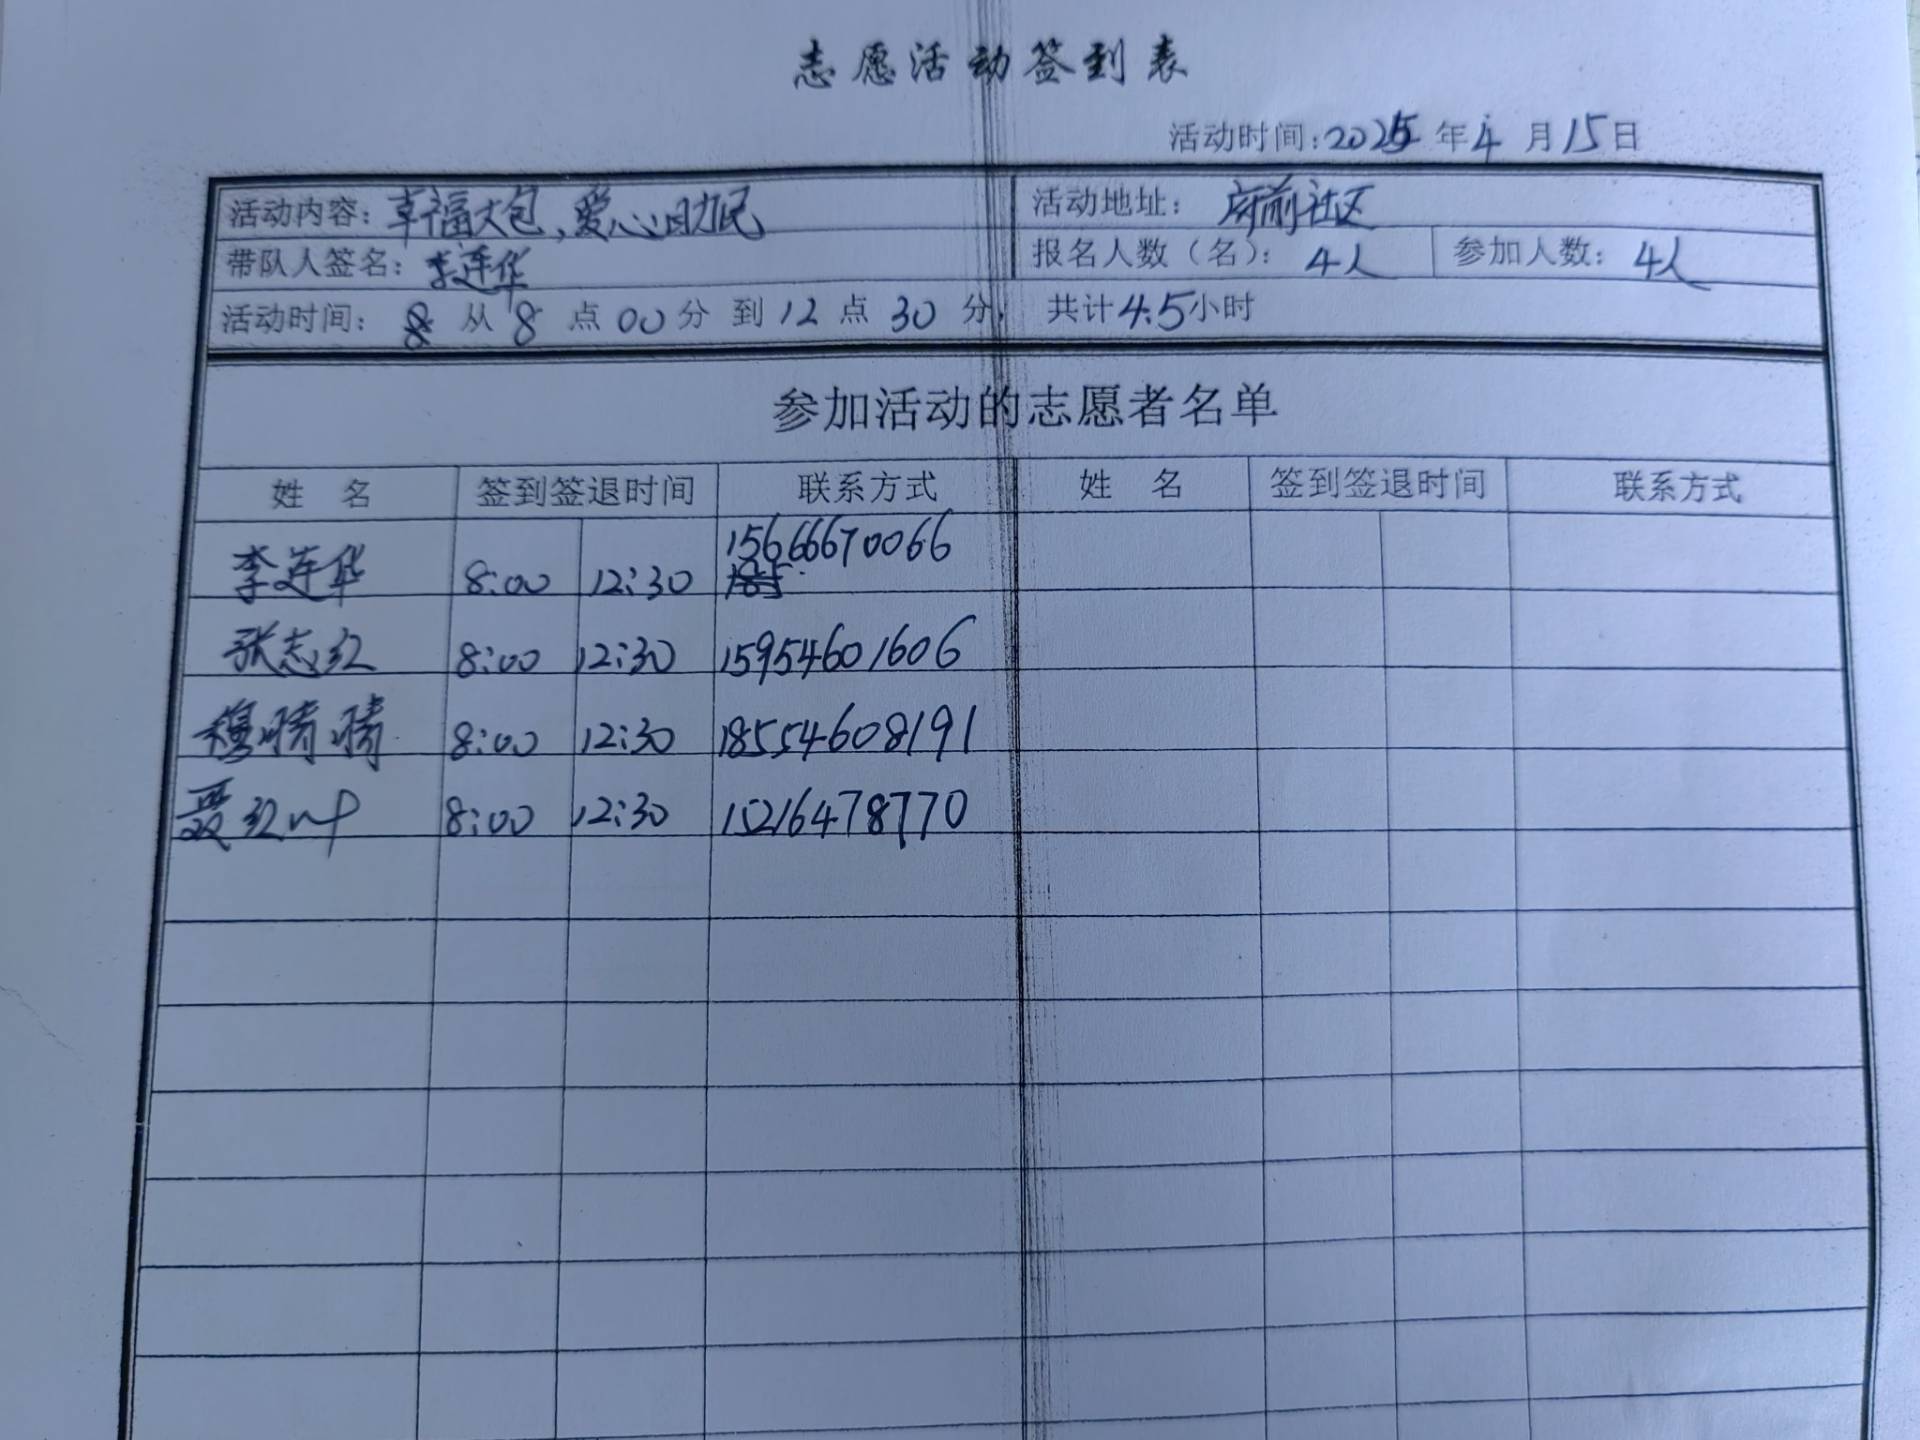 志愿活动签到表
活动时间:2025年4月15日
活动内容:幸福大包、爱心助民 活动地址: 府前社区
带队人签名:李连华 报名人数(名): 4人 参加人数: 4人
活动时间: 从8点00分到12点30分, 共计4.5小时
参加活动的志愿者名单
姓 名 签到签退时间 联系方式 姓 名 签到签退时间 联系方式
李连华 8:00 12:30 15666670066
张志红 8:00 12:30 15954601606
穆晴晴 8:00 12:30 18554608191
聂红叶 8:00 12:30 15216478770